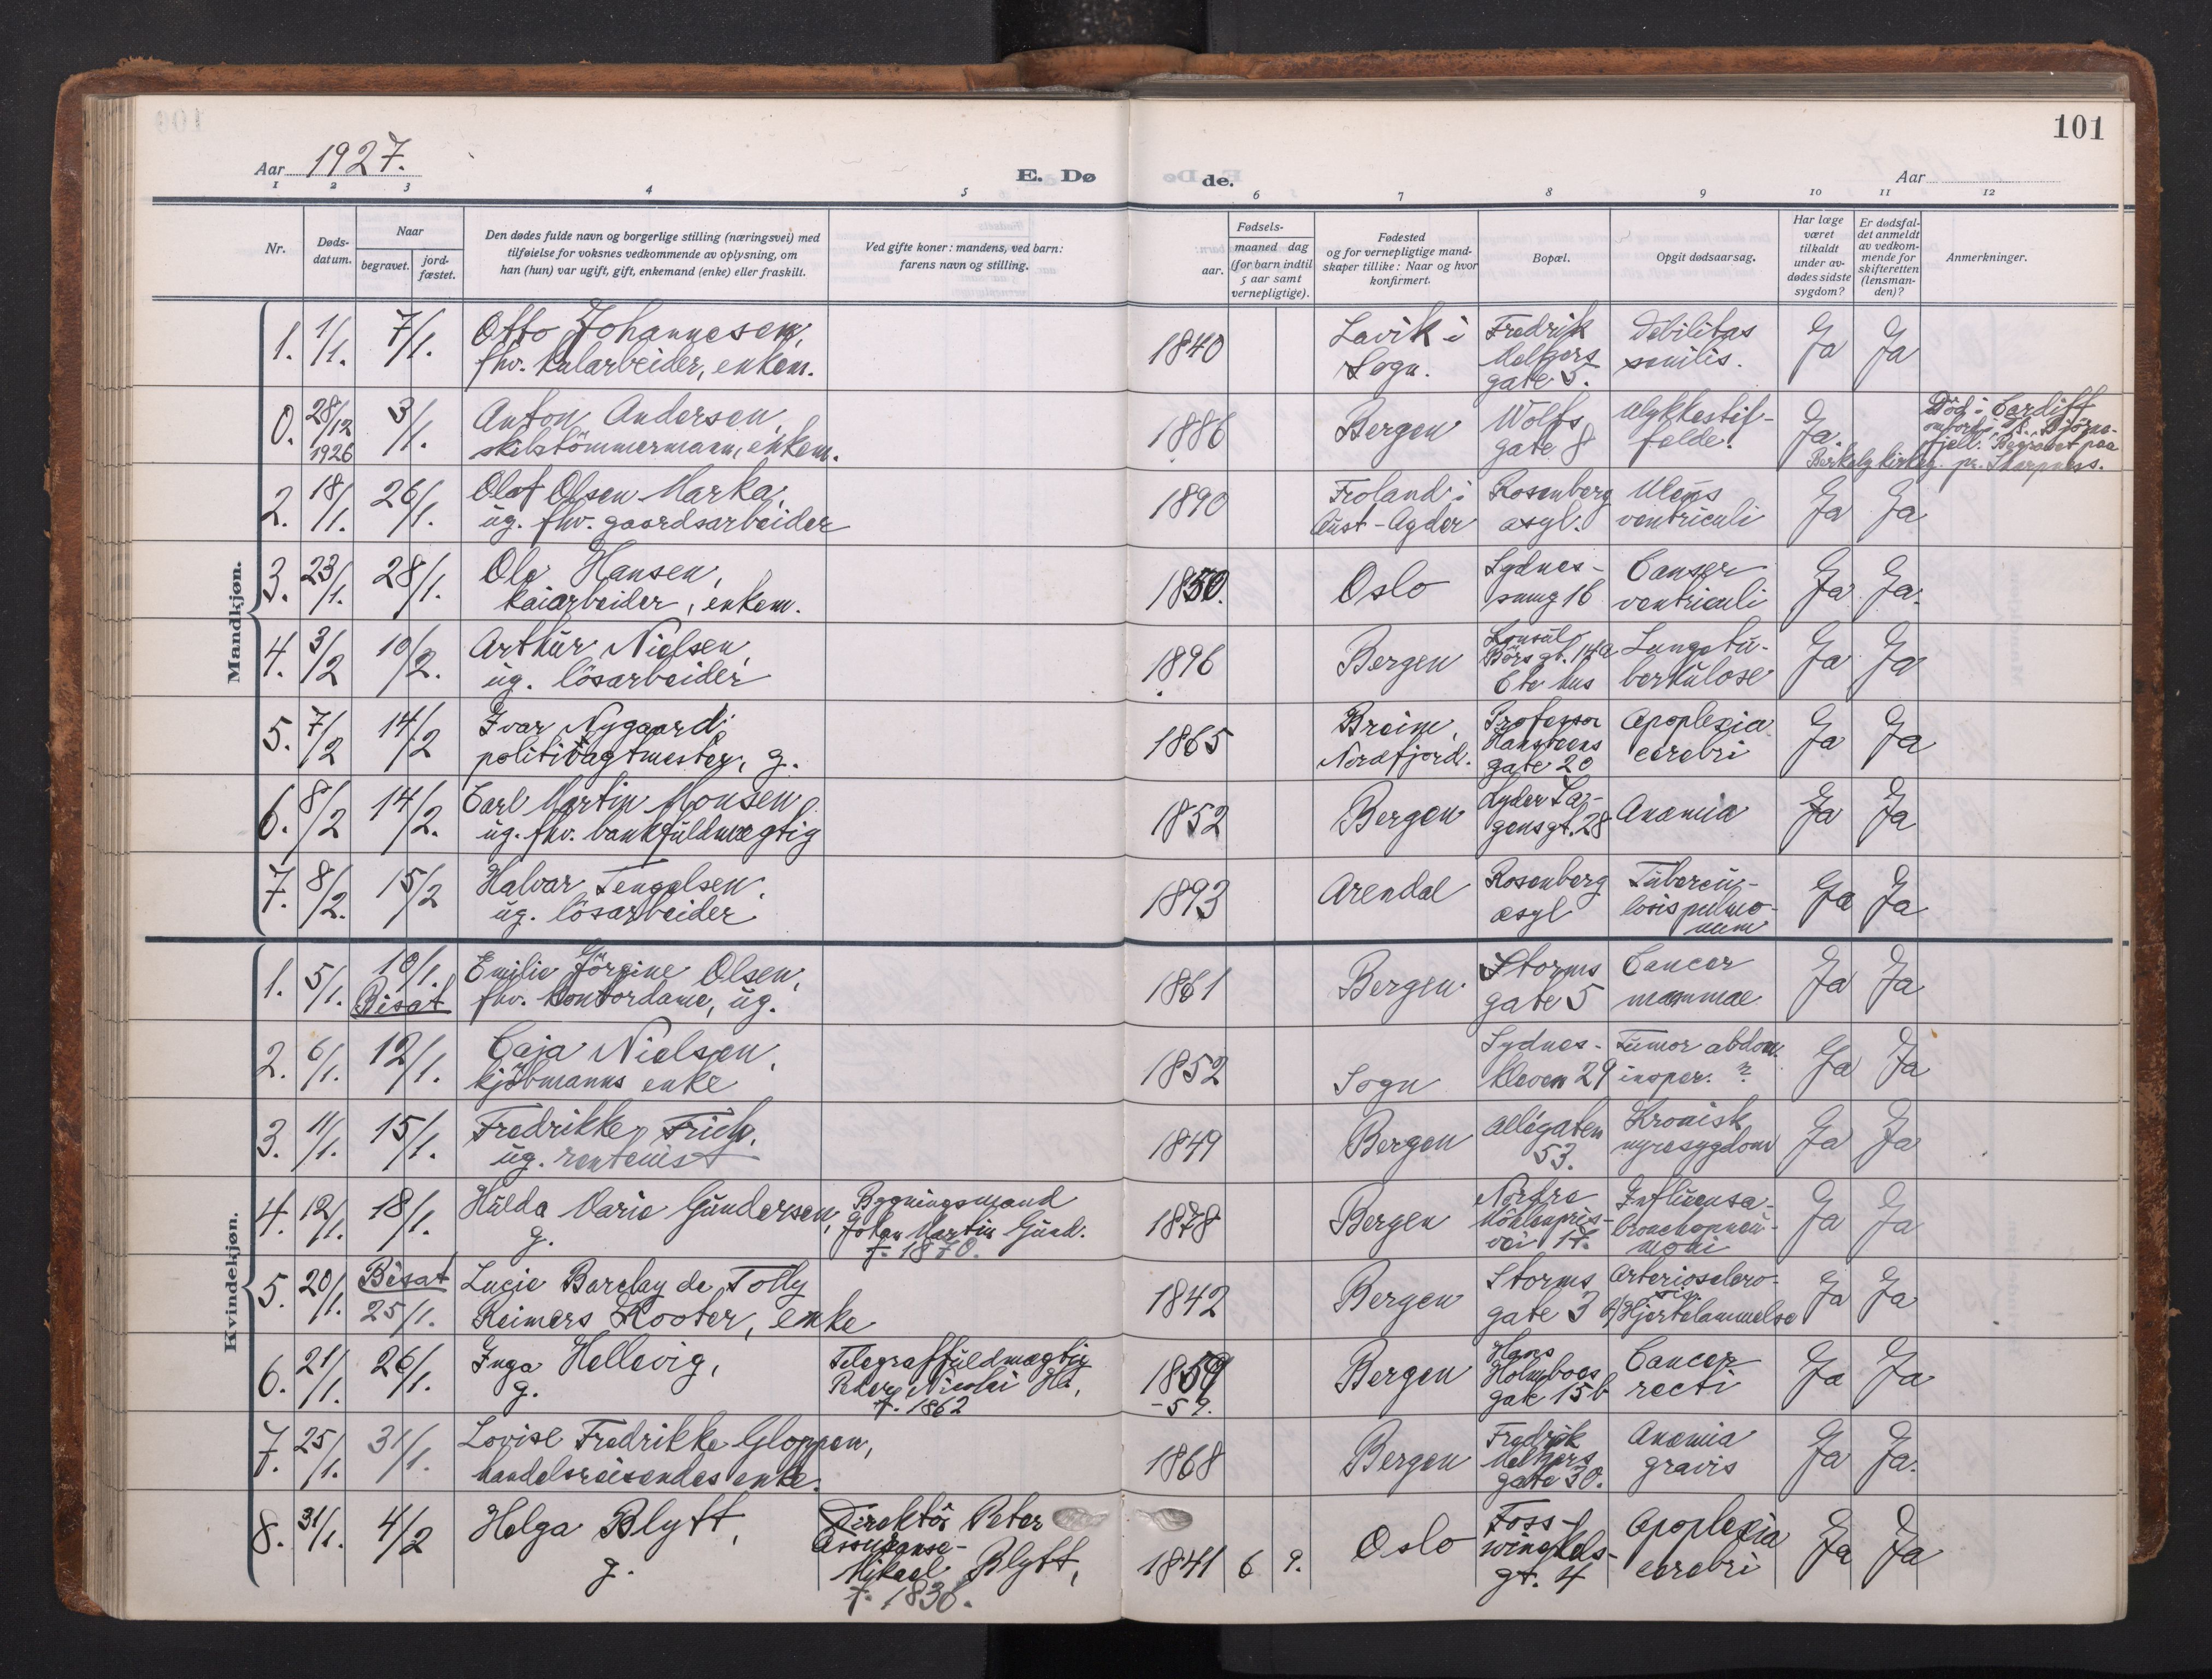 101
Aar 1927.
E. Dø
de.
Aar
1 2 3 4 5 6 7 8 9 10 11 12
Nr.
Døds-
datum.
Naar
begravet.
jord-
fæstet.
Den dødes fulde navn og borgerlige stilling (næringsvei) med
tilføielse for voksnes vedkommende av oplysning, om
han (hun) var ugift, gift, enkemand (enke) eller fraskilt.
Ved gifte koner: mandens, ved barn:
farens navn og stilling.
Fødsels-
aar.
maaned dag
(for barn indtil
5 aar samt
vernepligtige).
Fødested
og for vernepligtige mand-
skaper tillike: Naar og hvor
konfirmert.
Bopæl.
Opgit dødsaarsag.
Har læge
været
tilkaldt
under av-
dødes sidste
sygdom?
Er dødsfal-
det anmeldt
av vedkom-
mende for
skifteretten
(lensman-
den)?
Anmerkninger.
Mandkjøn.
1. 1/1. 7/1. Otto Johannesen,
fhv. kularbeider, enkem.
1840
Lavik i
Sogn.
Fredrik
Meltzers
gate 5.
Debilitas
senilis.
Ja Ja
0. 28/12
1926
3/1. Anton Andersen,
skibstömmermann, enkem.
1886
Bergen
Wolffs
gate 8
Ulykkestil-
felde.
Ja.
Död i Cardiff
ombord i D/S. "Björns-
fjell." Begravet paa
Berkely kirkeg. pr. Sharpness.
2. 18/1. 26/1. Olaf Olsen Marka,
ug. fhv. gaardsarbeider
1890
Froland i
Aust-Agder
Rosenberg
asyl.
Ulcus
ventriculi
Ja Ja
3. 23/1. 28/1. Ole Hansen,
kaiarbeider, enkem.
1850.
Oslo
Sydnes-
smug 16
Canser
ventriculi
Ja Ja.
4. 3/2 10/2. Arthur Nielsen,
ug. lösarbeider
1896
Bergen
Konsul
Börs gt. 14a
6te hus
Lungetu-
berkulose
Ja Ja
5. 7/2 14/2 Ivar Nygaard,
politivagtmester, g.
1865
Breim,
Nordfjord.
Professor
Hansteens
gate 20
Apoplexia
cerebri
Ja Ja
6. 8/2 14/2. Carl Martin Monsen,
ug. fhv. bankfuldmægtig
1852
Bergen
Lyder Sa-
gensgt. 28
Anæmia
Ja Ja
7. 8/2. 15/2 Halvar Tengelsen,
ug. lösarbeider
1893
Arendal
Rosenberg
asyl
Tubercu-
losis pulmo-
num
Ja Ja
Kvindekjøn.
1. 5/1. 10/1.
Bisat
Emilie Jörgine Olsen,
fhv. kontordame, ug.
1861
Bergen.
Storms
gate 5
Cancer
mammae
Ja Ja
2. 6/1. 12/1. Caja Nielsen,
kjöbmanns enke
1852
Sogn
Sydnes-
kleven 29
Tumor abdom.
inoper. ?
Ja Ja
3. 11/1. 15/1. Fredrikke Frich,
ug. rentenist
1849
Bergen
Allégaten
53.
Kronisk
nyresygdom
Ja Ja
4. 12/1. 18/1. Hulda Marie Gundersen,
g.
Bygningsmand
Johan Martin Gund.
f. 1870.
1878
Bergen
Nordre
Möhlenpris-
vei 17.
Influensa-
bronchopneu-
moni
Ja Ja
5. 20/1. Bisat
25/1.
Lucie Barclay de Tolly
Reimers Kooter, enke
1842
Bergen
Storms
gate 3
Arteriosclero-
sis
Hjertelammelse
Ja Ja
6. 21/1. 26/1. Inga Hellevig,
g.
Telegraffuldmægtig
Peter Nicolai He.,
f. 1862
1859
-59.
Bergen
Hans
Holmboes
gate 15b
Cancer
recti
Ja Ja
7. 25/1. 31/1. Lovise Fredrikke Gloppen,
handelsreisendes enke.
1868
Bergen
Fredrik
Meltzers
gate 30.
Anæmia
gravis
Ja Ja.
8. 31/1. 4/2 Helga Blytt,
g.
Direktör Peter
Assuranse-
Mikael Blytt,
f. 1836.
1841 6 9.
Oslo
Foss-
winckels-
gt. 4
Apoplexia
cerebri
Ja Ja